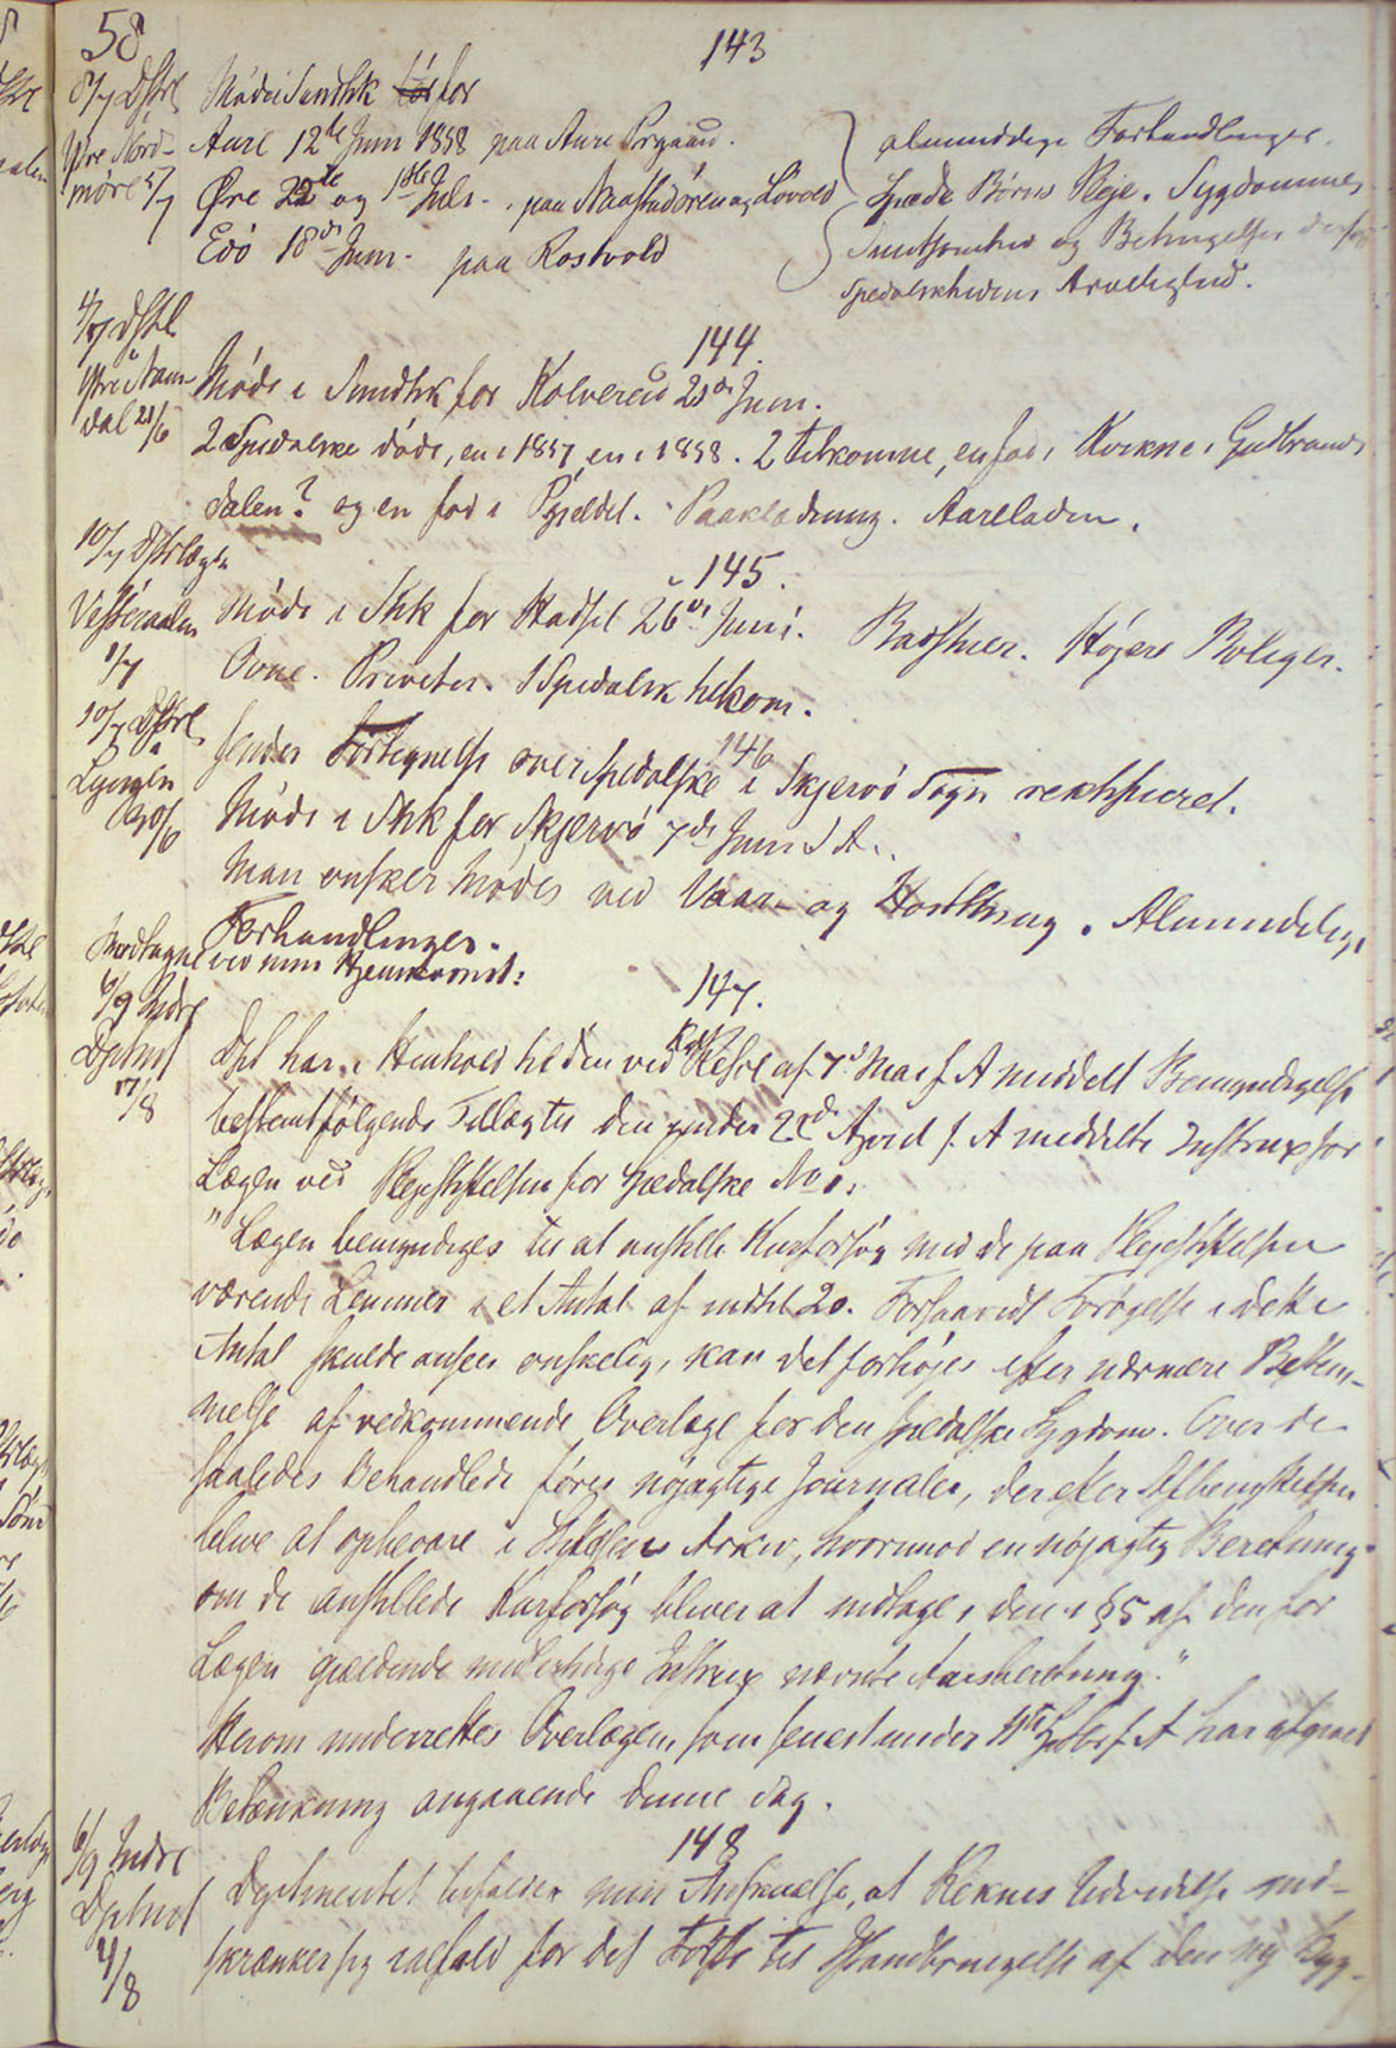 58
143
8/7 Dstrl
Ydre Nord-
möre 5/7
Möder i Sundhk for
Aure 12te Juni 1858 paa Aure Prgaard.
Öre 22de og 1ste Juli - paa Naastadören og Lövold
Edö 18de Juni - paa Rostvold
almindelige Forhandlinger.
Spæde Börns Pleje. Sygdommes
Smitsomhed og Betingelser derfor
Spedalskhedens Arvelighed.
144.
Dstrl
Ytre Nam-
dal 21/6
Möde i Sundhk for Kolvereid 21de Juni.
2 Spedalske döde, en i 1857, en i 1858. 2 tilkomne, en föd i Kvikne i Gudbrands
dalen? og en föd i Pgjeldet. Paaklædning. Aareladen.
145.
10/7 Dstrlægen
Vesteraalen
1/7
Möde i Shk for Hadsel 26de Juni. Badstuer. Höjere Boliger.
Ovne. Priveter. 1 Spedalsk tilkom.
146
10/7 Dstrl
i
Lyngen
30/6
sender Fortegnelse over spedalske i Skjervö Sogn rektificeret.
Möde i Shk for Skjervö 7de Juni d A.
Man önsker Möder ved Vaar- og Höstthing. Almindelige
Forhandlinger.
Modtagne ved min Hjemkomst:
147.
6/9 Indre
Dptmt
17/8
Dpt har i Henhold til den ved Kgl Resol af 7de Mai f A meddelt Bemyndigelse
bestemt fölgende Tillæg til den under 22de April f. A meddelte Instrux for
Lægen ved Plejestiftelsen for Spedalske No 1.
"Lægen bemyndiges til at anstille Kurforsög med de paa Plejestiftelsen
værende Lemmer i et Antal af indtil 20. Forsaavidt Forögelse i dette
Antal skulde ansees önskelig, kan det forhöjes efter nærmere Bestem-
melse af vedkommende Overlæge for den spedalske Sygdom. Over de
saaledes Behandlede föres nöjagtige Journaler, der efter Afbenyttelsen
blive at opbevare i Stiftelsens Arkiv, hvorimod en nöjagtig Beretning
om de anstillede Kurforsög bliver at indtage i den i §5 af den for
Lægen gjældende midlertidige Instrux nævnte Aarsberetning."
Herom underrettes Overlægen, som senest under f A har afgivet
Betænkning angaaende denne Sag.
148
6/9 Indre
Dptmt
21/8
Dptmentet bifalder min Anskuelse, at Reknes Udvidelse ind-
skrænker sig ialfald for det Förste til Istandbringelse af den ny Byg-